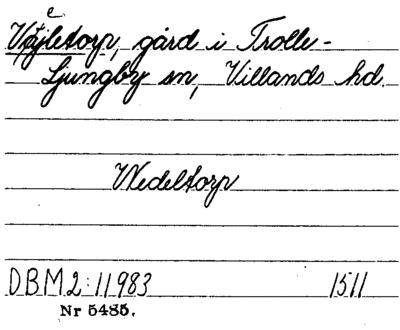 Väjletorp, gård i Trolle-
Ljungby sn, Villands hd.
Wedeltorp
DBM2:11983 1511
Nr 5485.